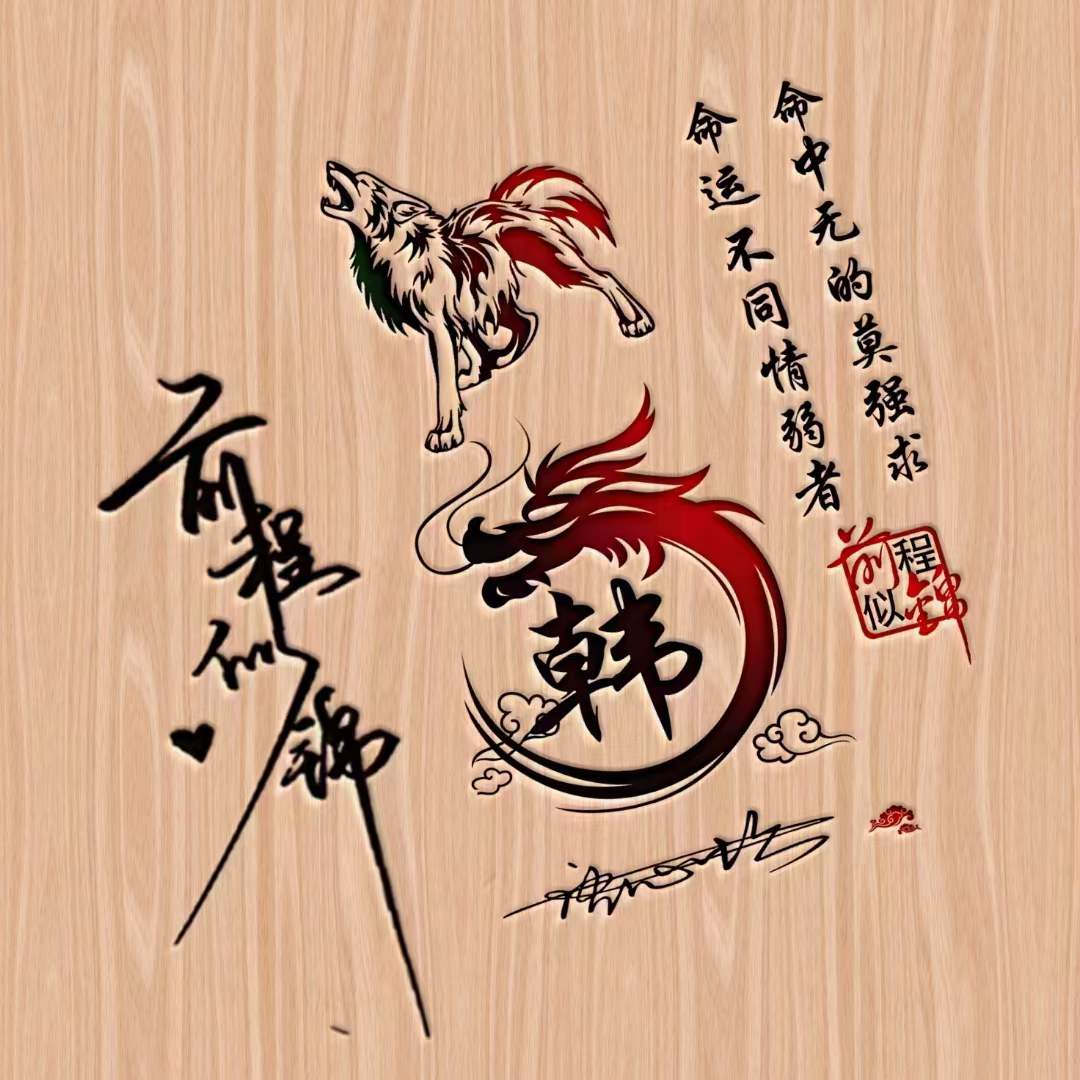 命中无的莫强求
命运不同情弱者
前程似锦
韩
前程似锦